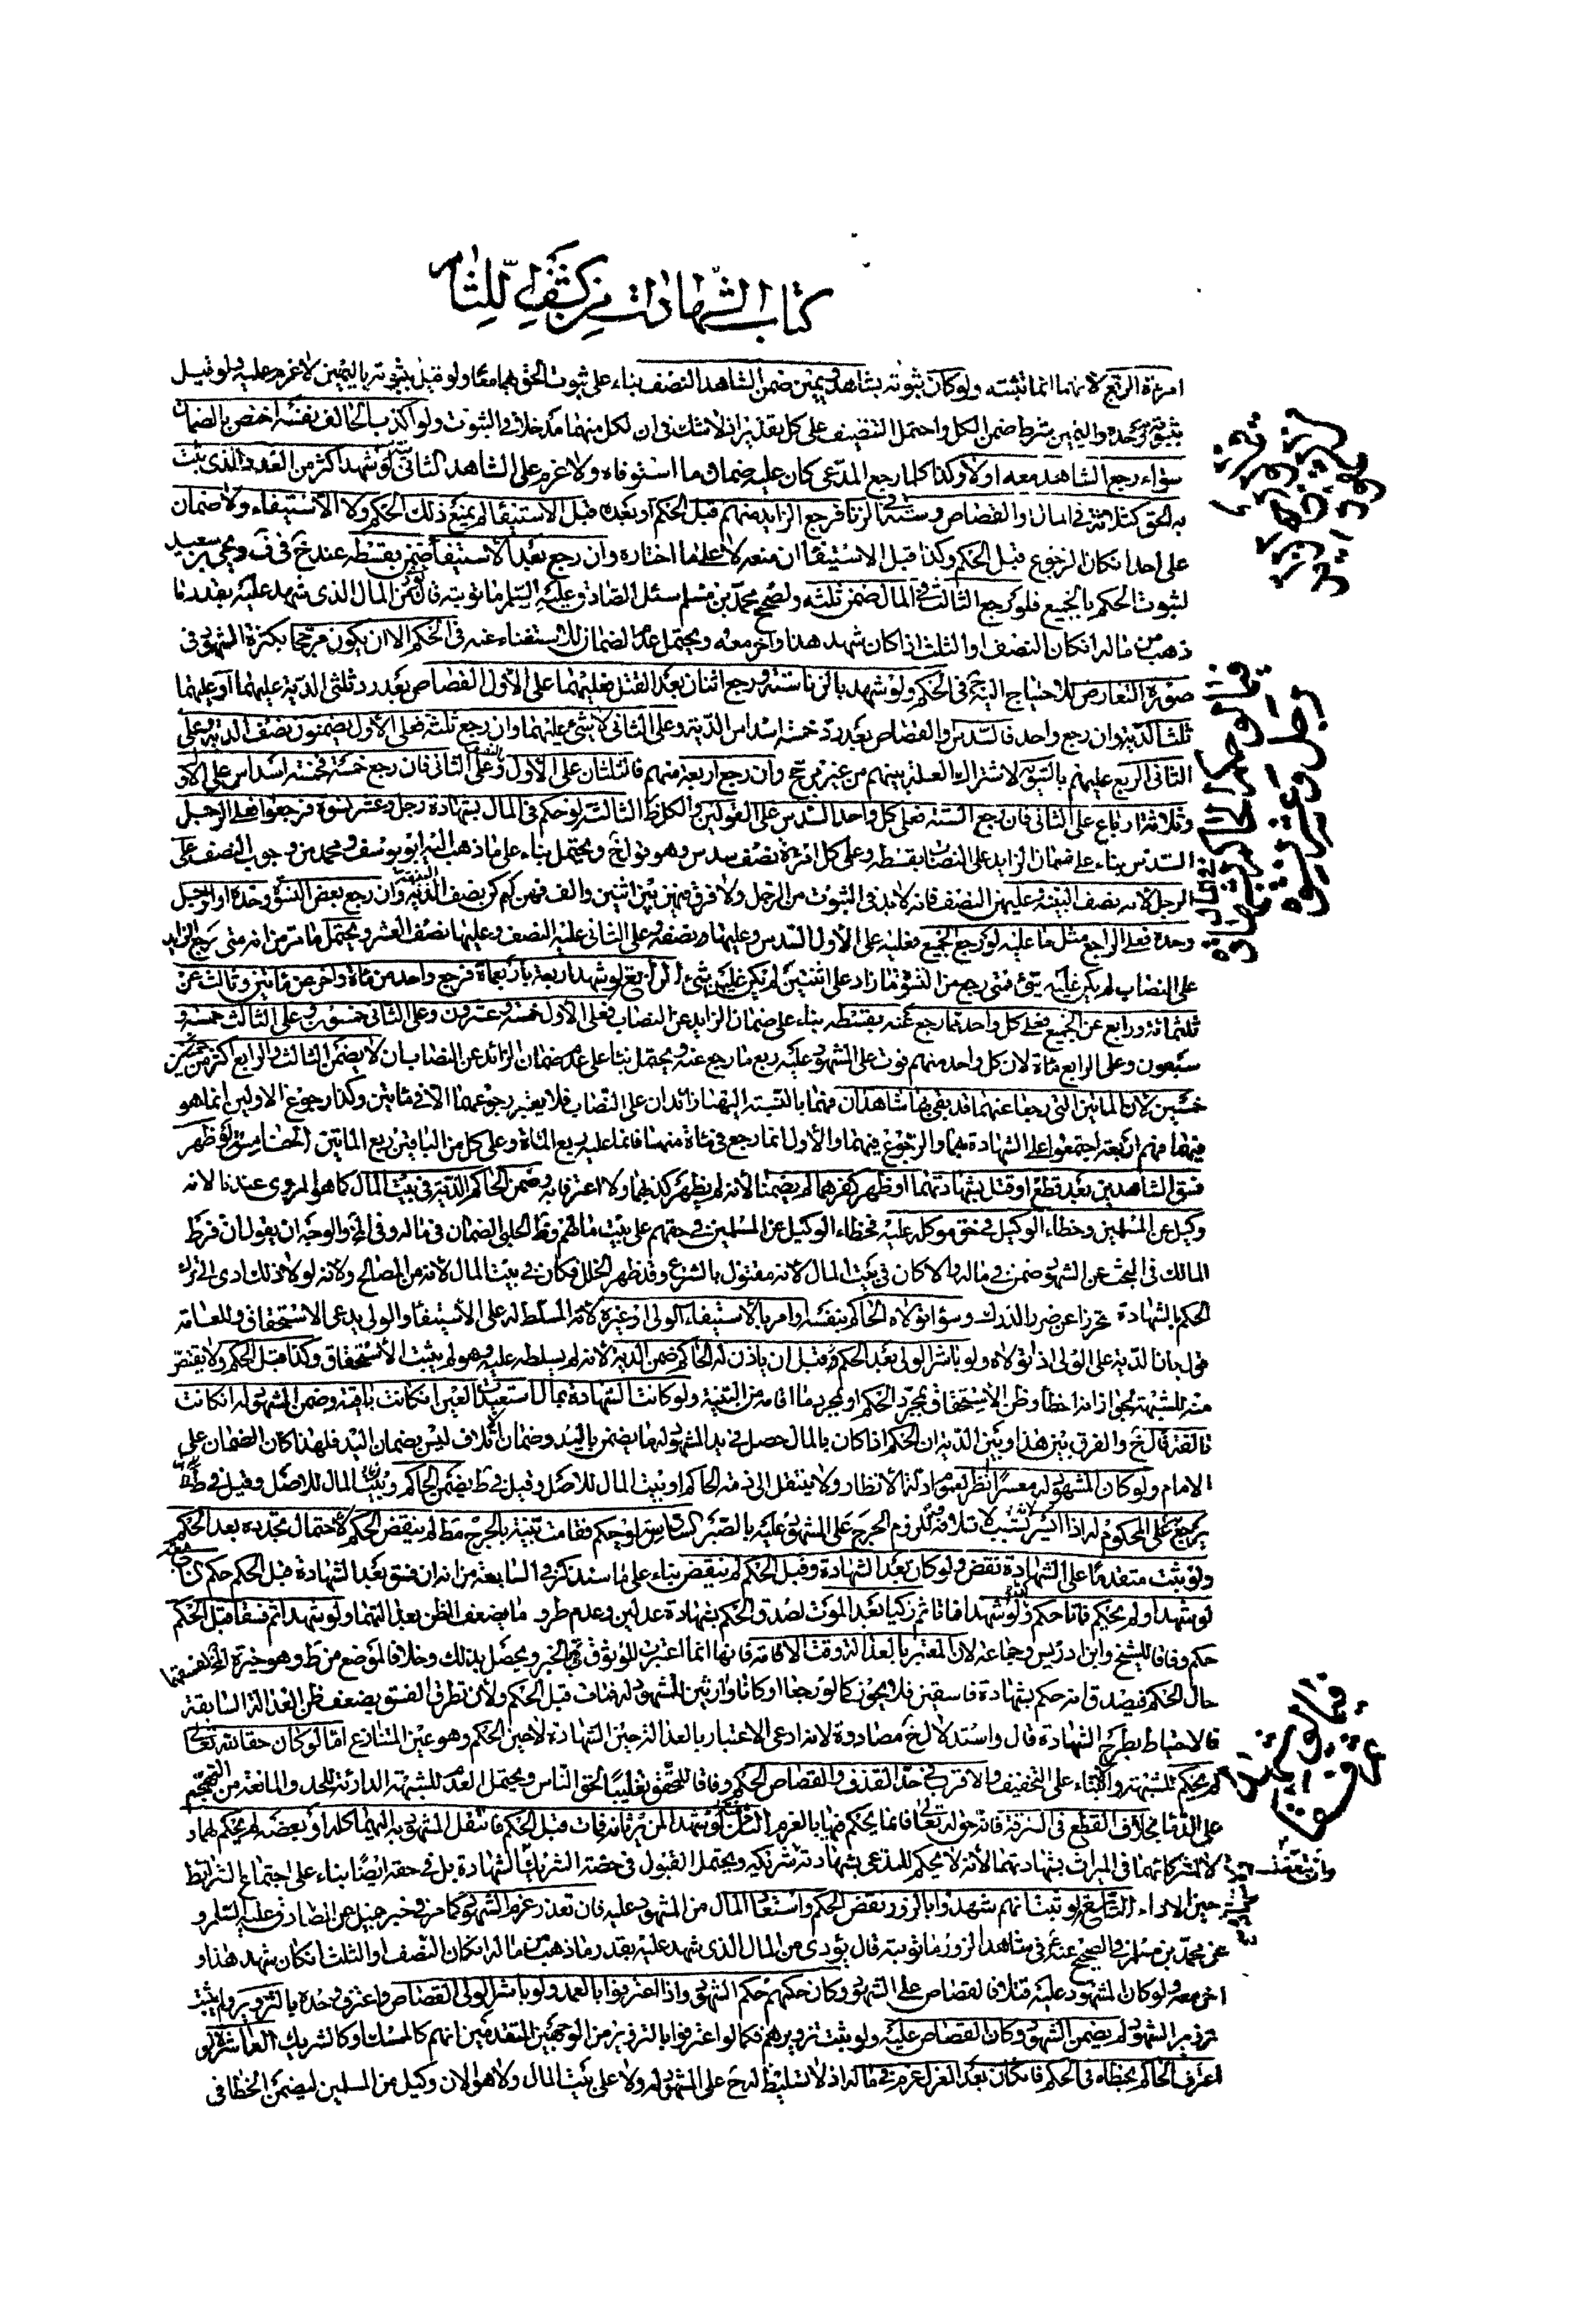 كتاب الشهادات من كشف اللثام
امرءة الربع لانهما انما تثبته ولو كان ثبوته بشاهد ويمين ضمن الشاهد النصف بناء على ثبوت الحق بهما معا ولو قيل بثبوته باليمين لا غرم عليه ولو قيل
بثبوته وحده واليمين شرط ضمن الكل واحتمل التنصيف على كل تقدير اذ لا شك فى ان لكل منهما مدخلا فى الثبوت ولو اكذب الحالف نفسه اختص بالضمان
سواء رجع الشاهد معه او لا وكذا كلما رجع المدعى كان عليه ضمان ما استوفاه ولا غرم على الشاهد الثانى لو شهد اكثر من العدد الذى يثبت
به الحق كثلاثة فى المال او القصاص وستة فى الزنا فرجع الزايد منهم قبل الحكم او بعده قبل الاستيفا لم يمنع ذلك الحكم ولا الاستيفاء ولا ضمان
على احد ان كان الرجوع قبل الحكم وكذا قبل الاستيفا ان منعه لا على ما اختاره وان رجع بعد الاستيفا ضمن بقسطه عند خ فى ف ويحيى بن سعيد
لثبوت الحكم بالجميع فلو رجع الثالث فى المال ضمن ثلثه ولصحيح محمد بن مسلم سئل الصادق عليه السلم ما توبته قال يؤدى من المال الذى شهد عليه بقدر ما
ذهب من ماله ان كان النصف او الثلث اذا كان شهد هذا وآخر معه ويحتمل عدم الضمان للاستغناء عنه فى الحكم الا ان يكون مرجحا بكثرة الشهود فى
صورة التعارض للاحتياج اليه ح فى الحكم ولو شهد بالزنا ستة ورجع اثنان بعد القتل فعليهما على الاول القصاص بعد رد ثلثى الدية عليهما او عليهما
ثلثا الدية وان رجع واحد فالسدس او القصاص بعد رد خمسة اسداس الدية وعلى الثانى لا شئ عليهما وان رجع ثلثة فعلى الاول يضمنون نصف الدية وعلى
الثانى الربع عليهم بالسوية لاشتراك العلة بينهم من غير مرجح وان رجع اربعة منهم فالثلثان على الاول والنصف على الثانى فان رجع خمسة فخمسة اسداس على الاول
وثلاثة ارباع على الثانى فان رجع الستة فعلى كل واحد السدس على القولين والكل ظ الثالث لو حكم فى المال بشهادة رجل وعشر نسوة فرجعوا فعلى الرجل
السدس بناء على ضمان الزايد على النصاب بقسطه وعلى كل امرءة نصف سدس وهو قول خ ويحتمل بناء على ما ذهب اليه ابو يوسف ومحمد من وجوب النصف على
الرجل لانه نصف البينة وعليهن النصف فانه لابد فى الثبوت من الرجل ولا فرق فيهن بين اثنتين والف فهن كم كن نصف البينة وان رجع بعض النسوة وحده او الرجل
وحده فعلى الراجع مثل ما عليه لو رجع الجميع فعليه على الاول السدس وعليها نصفه وعلى الثانى عليه النصف وعليها نصف العشر ويحتمل ما مر من انه متى رجع الزايد
على النصاب لم يكن عليه شئ فمتى رجع من النسوة ما زاد على اثنتين لم يكن عليهن شئ الرابع لو شهد اربعة باربعمأة فرجع واحد من مأة واخر من مأتين وثالث عن
ثلثمائة ورابع عن الجميع فعلى كل واحد مما رجع عنه بقسطه بناء على ضمان الزايد عن النصاب فعلى الاول خمسة وعشرون وعلى الثانى خمسون وعلى الثالث خمسة و
سبعون وعلى الرابع مأة لان كل واحد منهم فوت على المشهود عليه ربع ما رجع عنه ويحتمل بناء على عدم ضمان الزائد عن النصاب ان لا يضمن الثالث والرابع اكثر من خمسين
خمسين لان المأتين التى رجعا عنهما قد بقى بها شاهدان فهما بالنسبة اليهما زائدان على النصاب فلا يعتبر رجوعهما الا فى مأتين وكذا رجوع الاولين انما هو
فيهما فهم اربعة اجتمعوا على الشهادة بهما والرجوع فيهما والاول انما رجع فى مأة منهما فانما عليه ربع المأة وعلى كل من الباقين ربع المأتين الخامس لو ظهر
فسق الشاهدين بعد قطع او قتل بشهادتهما او ظهر كفرهما لم يضمنا لانه لم يظهر كذبهما ولا اعترفا به وضمن الحاكم الدية فى بيت المال كما هو المروى عندنا لانه
وكيل عن المسلمين وخطاء الوكيل فى حق موكله عليه فخطاء الوكيل عن المسلمين فى حقهم على بيت مالهم وظ الحلبى الضمان فى ماله وفى والوجه ان يقول ان فرط
المالك فى البحث عن الشهود ضمن فى ماله والا كان فى بيت المال لانه مقتول بالشرع وقد ظهر الخلل فكان فى بيت المال لانه من المصالح ولانه لو لا ذلك ادى الى ترك
الحكم بالشهادة تحرزا عن ضرر الدرك وسواء تولاه الحاكم بنفسه او امر بالاستيفاء الولى او غيره لانه المسلط له على الاستيفا والولى يدعى الاستحقاق وللعامة
قول بان الدية على الولى اذا تولاه ولو باشر الولى بعد الحكم وقبل ان ياذن له الحاكم ضمن الدية لانه لم يسلطه عليه وهو لم يثبت الاستحقاق وكذا قبل الحكم ولا يقتص
منه للشبهة لجواز انه اخطأ وظن الاستحقاق بمجرد الحكم او بمجرد ما اقامه من البينة ولو كانت الشهادة بمال استعيدت العين ان كانت باقية وضمن المشهود له ان كانت
تالفة قال خ والفرق بين هذا وبين الدية ان الحكم اذا كان بالمال حصل فى يد المشهود له ما يضمن باليد وضمان الاتلاف ليس بضمان اليد فلهذا كان الضمان على
الامام ولو كان المشهود له معسرا انظر لعموم ادلة الانظار ولا ينتقل الى ذمة الحاكم او بيت المال للاصل وقيل فى ط يضمن الحاكم وبيت المال للاصل وقيل فى ط
يرجع على المحكوم له اذا ايسر لاتلافه ولزوم الحرج على المشهود عليه بالصبر السادس لو حكم فقامت بينة بالجرح مط لم ينقض الحكم لاحتمال تجدده بعد الحكم
ولو ثبت متقدما على الشهادة نقض ولو كان بعد الشهادة وقبل الحكم لم ينقض بناء على ما سنذكر فى السابعة من انه ان فسق بعد الشهادة قبل الحكم حكم
لو شهدا ولم يحكم فماتا حكم ولو شهدا فماتا ثم زكيا بعد الموت لصدق الحكم بشهادة عدلين وعدم طرو ما يضعف الظن بعدالتهما ولو شهدا ثم فسقا قبل الحكم
حكم وفاقا للشيخ وابن ادريس وجماعة لان المعتبر بالعدالة وقت الاقامة فانها انما اعتبرت للوثوق بالخبر ويحصل بذلك وخلافا لموضع من ط وهو خيرة لفسقهما
حال الحكم فيصدق انه حكم بشهادة فاسقين فلا يجوز كما لو رجعا او كانا وارثين للمشهود له فمات قبل الحكم ولان تطرق الفسق يضعف ظن العدالة السابقة
فالاحتياط بطرح الشهادة قال واستدلال خ مصادرة لانه ادعى الاعتبار بالعدالة حين الشهادة لا حين الحكم وهو عين المتنازع اما لو كان حقا لله تعالى
لم يحكم للشبهة والابتناء على التخفيف والاقرب فى حد القذف والقصاص الحكم وفاقا للمحقق تغليبا لحق الناس ويحتمل العدم للشبهة الدارئة للحد والمانعة من التهجم
على الدما بخلاف القطع فى السرقة فانه حق له تعالى فانما يحكم فيها بالغرم الثامن لو شهدا لمن يرثانه فمات قبل الحكم فانتقل المشهود به اليهما كله او بعضه لم يحكم لهما و
لا لشركائهما فى الميراث بشهادتهما لانه لا يحكم للمدعى بشهادته ولا شريكه ويحتمل القبول فى حصة الشريك بل فى حقه ايضا بناء على اجتماع الشرائط
حين الاداء التاسع لو ثبت انهم شهدوا بالزور نقض الحكم واستعيد المال من المشهود عليه فان تعذر غرم الشهود كما مر فى خبر جميل عن الصادق عليه السلم و
عن محمد بن مسلم فى الصحيح عنه ع فى شاهد الزور ما توبته قال يؤدى من المال الذى شهد عليه بقدر ما ذهب من ماله ان كان النصف او الثلث ان كان شهد هذا و
اخر معه ولو كان المشهود عليه قتلا فالقصاص على الشهود وكان حكمهم حكم الشهود اذا اعترفوا بالعمد ولو باشر الولى القصاص واعترف وحده بالتزوير ولم يثبت
تزوير الشهود لم يضمن الشهود وكان القصاص عليه ولو ثبت تزويرهم فكما لو اعترفوا بالتزوير من الوجهين المتقدمين انهم كالمسك او كالشريك العاشر لو
اعترف الحاكم بخطاه فى الحكم فان كان بعد العزل غرم فى ماله اذ لا تسليط له ح على المشهود له ولا على بيت المال ولا هو الان وكيل من المسلمين ليضمن الخطا فى